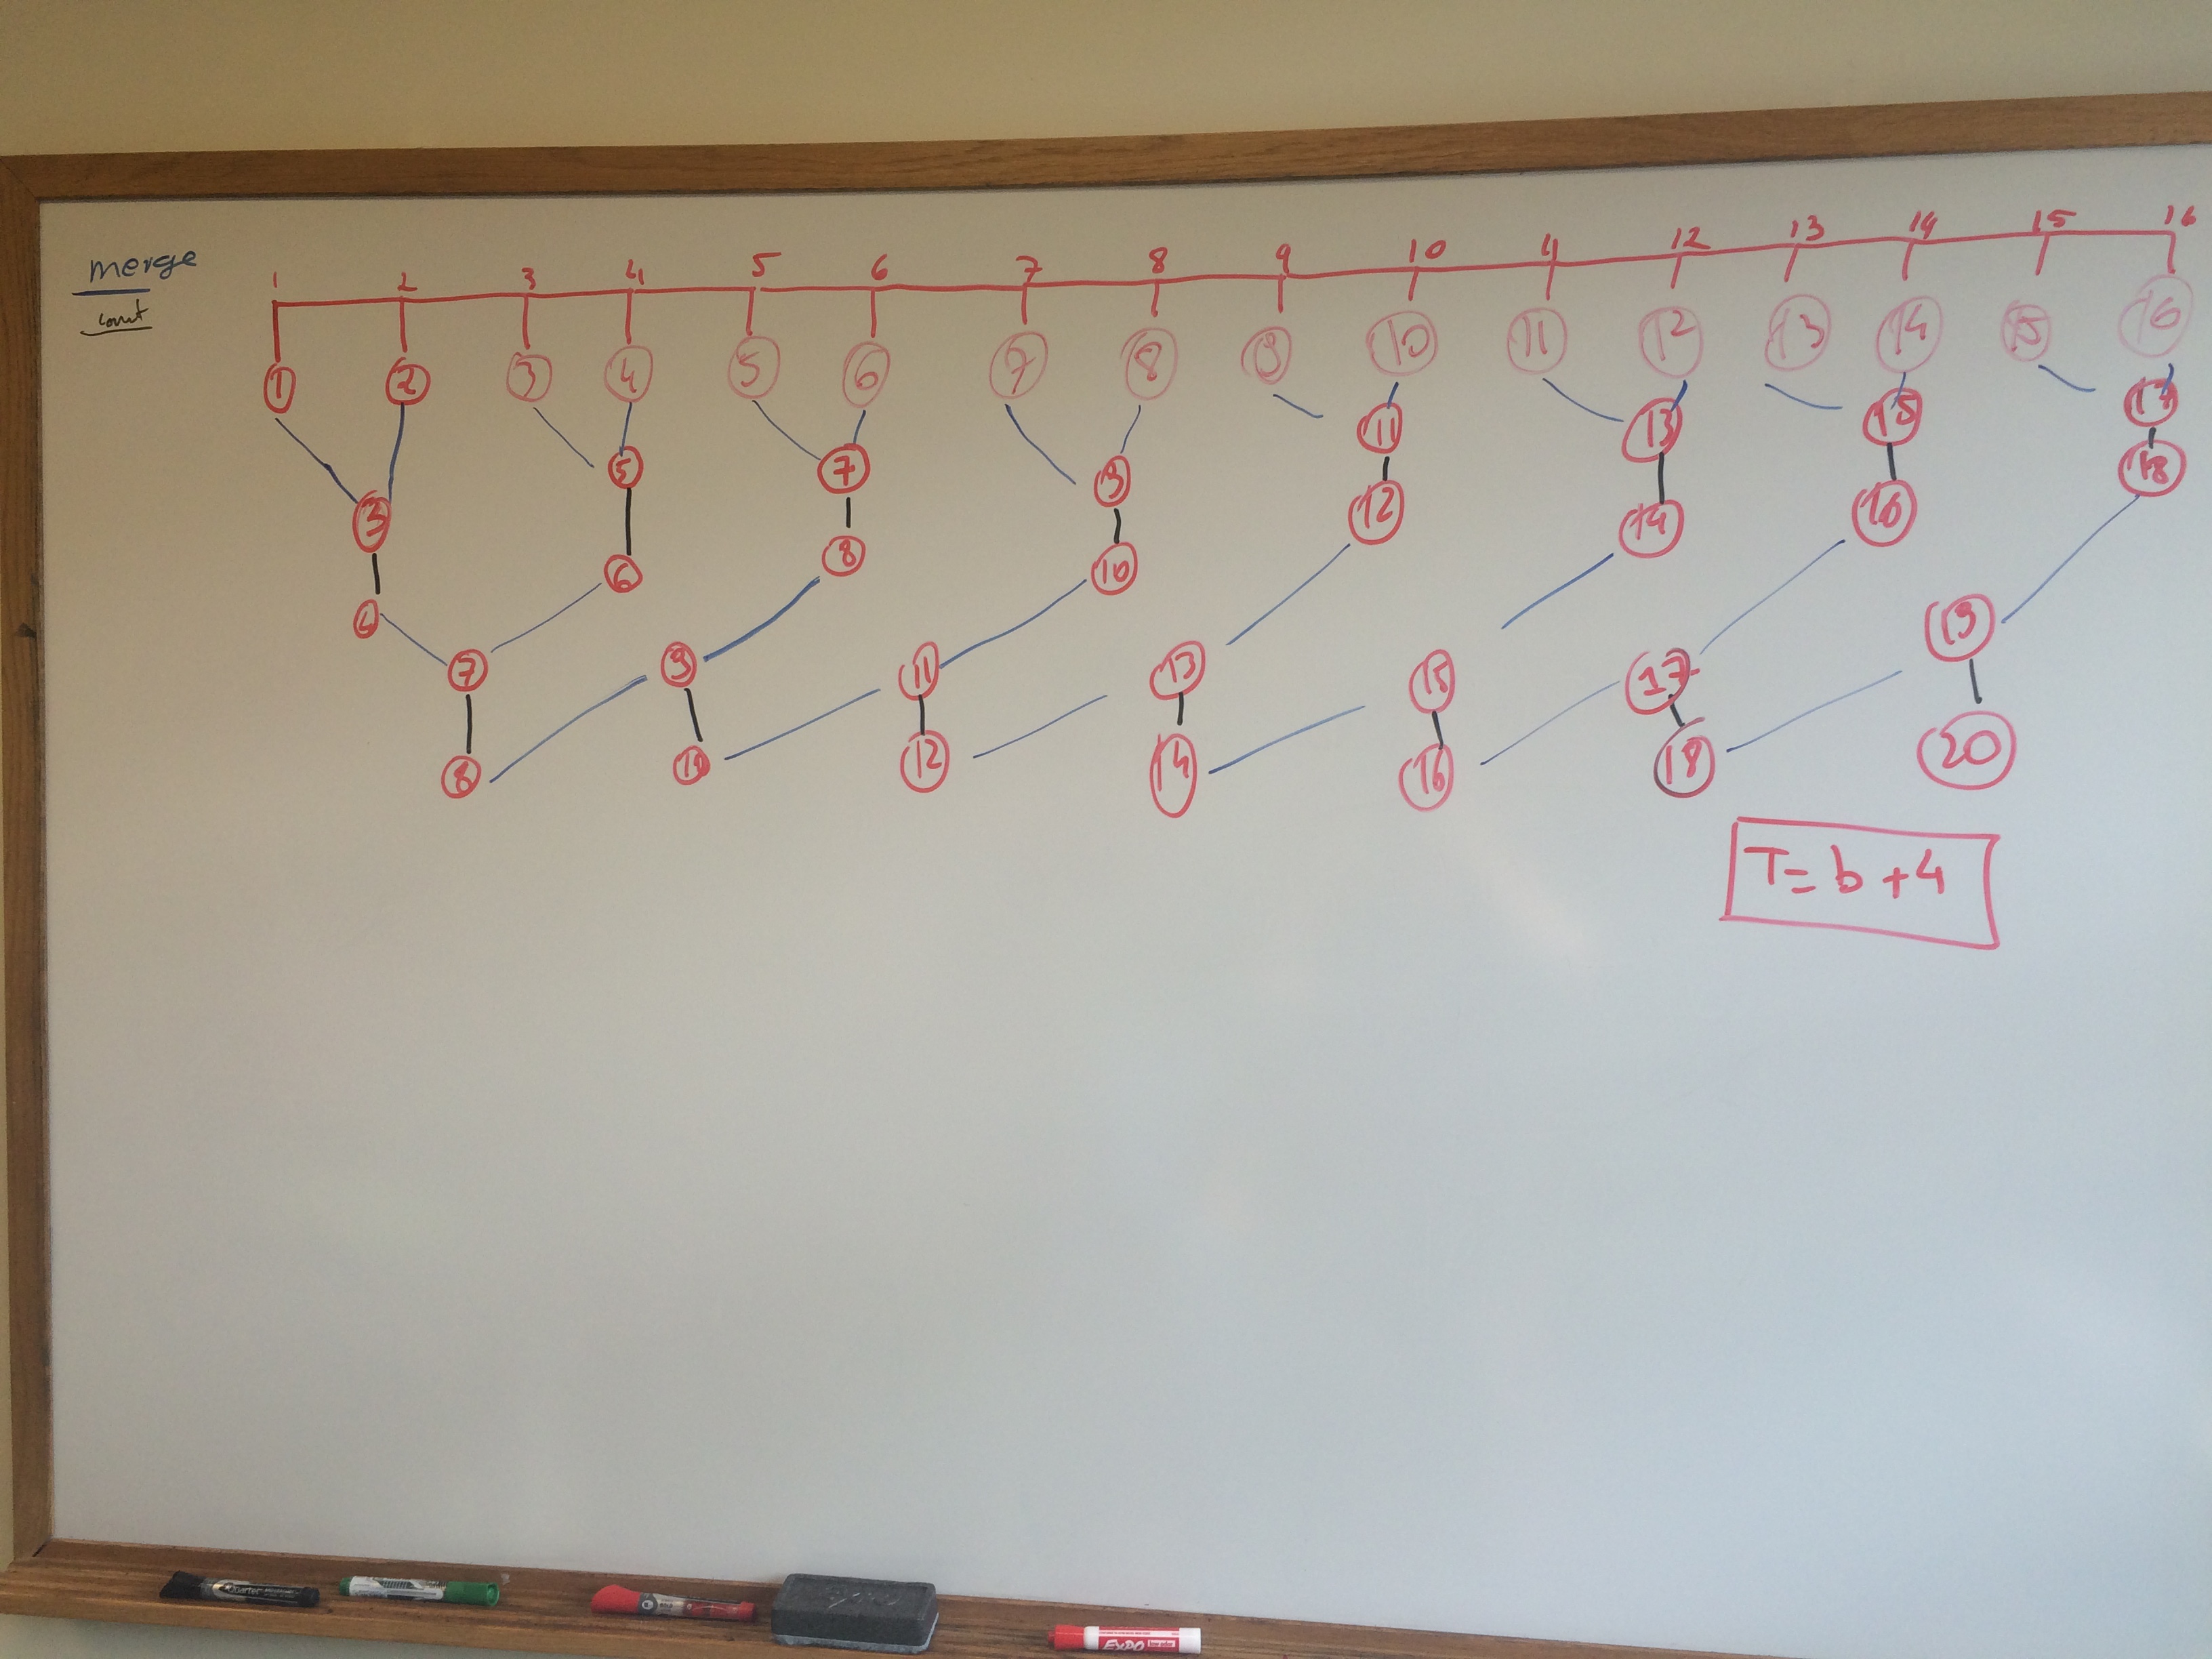 merge
count
1 2 3 4 5 6 7 8 9 10 11 12 13 14 15 16
1 2 3 4 5 6 7 8 9 10 11 12 13 14 15 16
3 5 7 9 11 13 15 17
4 6 8 10 12 14 16 18
7 9 11 13 15 17 19
8 10 12 14 16 18 20
T= b+4
Quartet
EXPO